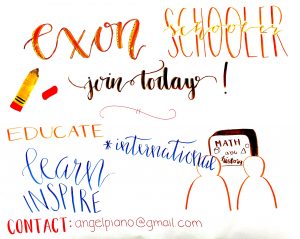 exon SCHOOLER
join today !
EDUCATE
*international
MATH
and
history
learn
INSPIRE
CONTACT: angelpiano@gmail.com